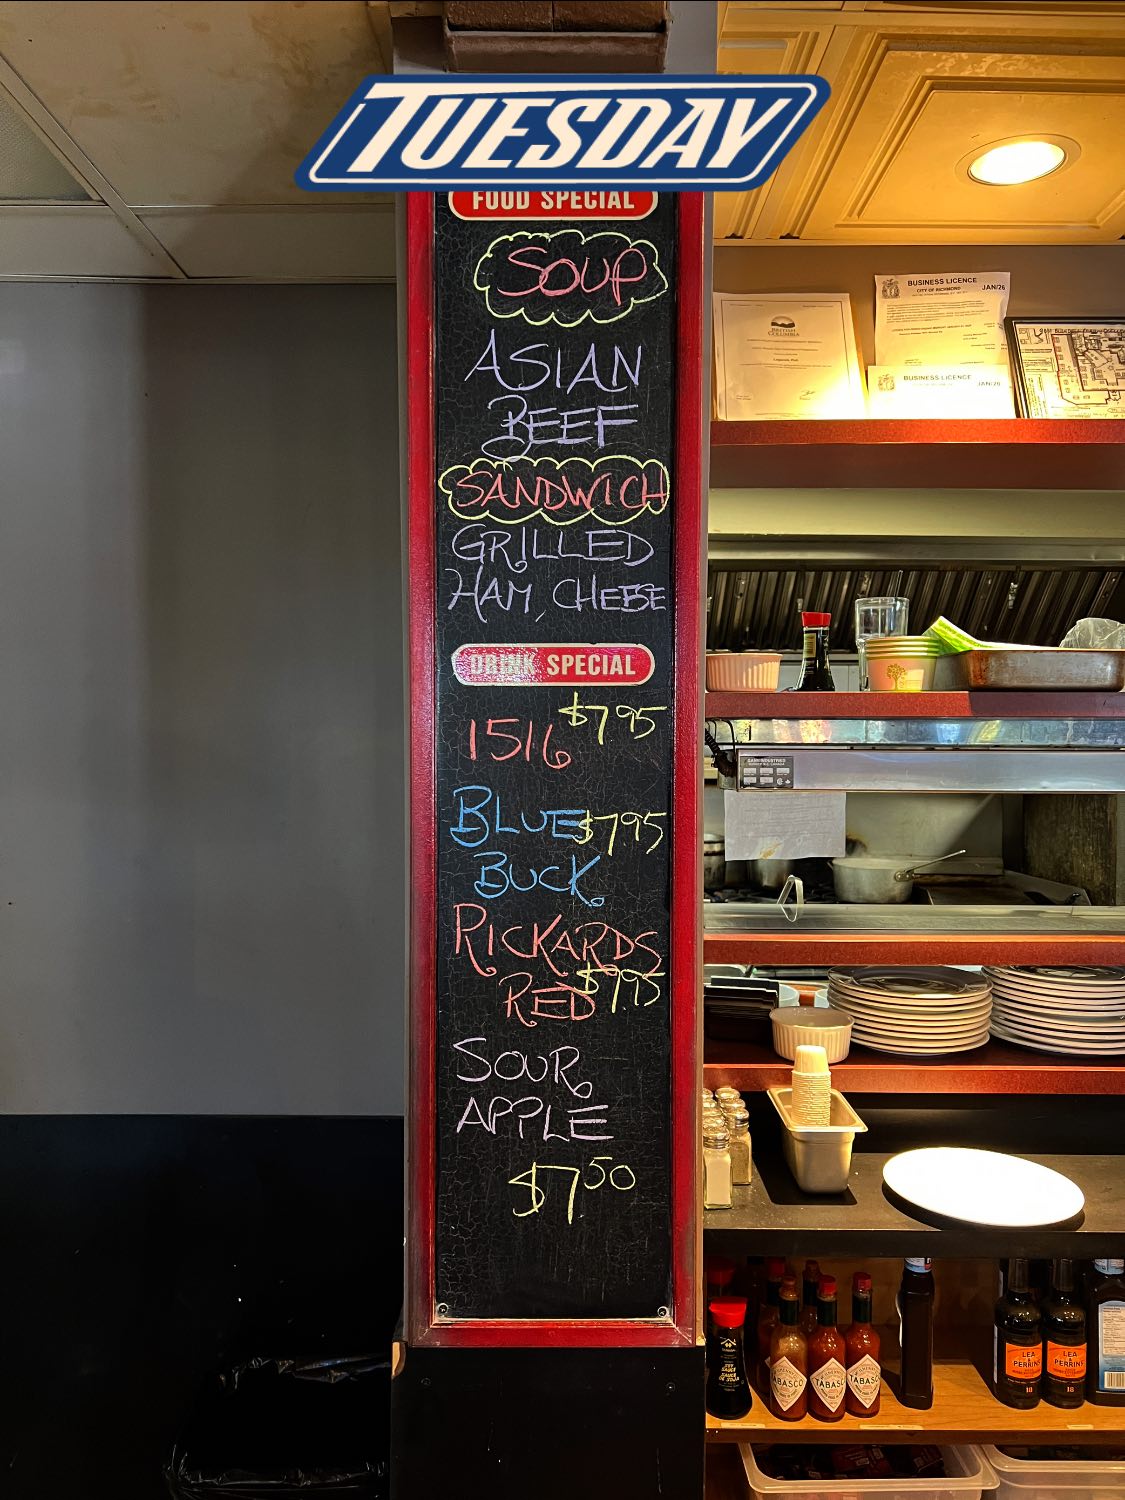 TUESDAY
FOOD SPECIAL
SOUP
ASIAN
BEEF
SANDWICH
GRILLED
HAM, CHEESE
DRINK SPECIAL
1516 $7.95
BLUE $7.95
BUCK
RICKARDS
RED $7.95
SOUR
APPLE
$7.50
BUSINESS LICENCE
CITY OF RICHMOND
JAN/26
BRITISH
COLUMBIA
BUSINESS LICENCE
TABASCO
TABASCO
TABASCO
LEA &
PERRINS
LEA &
PERRINS